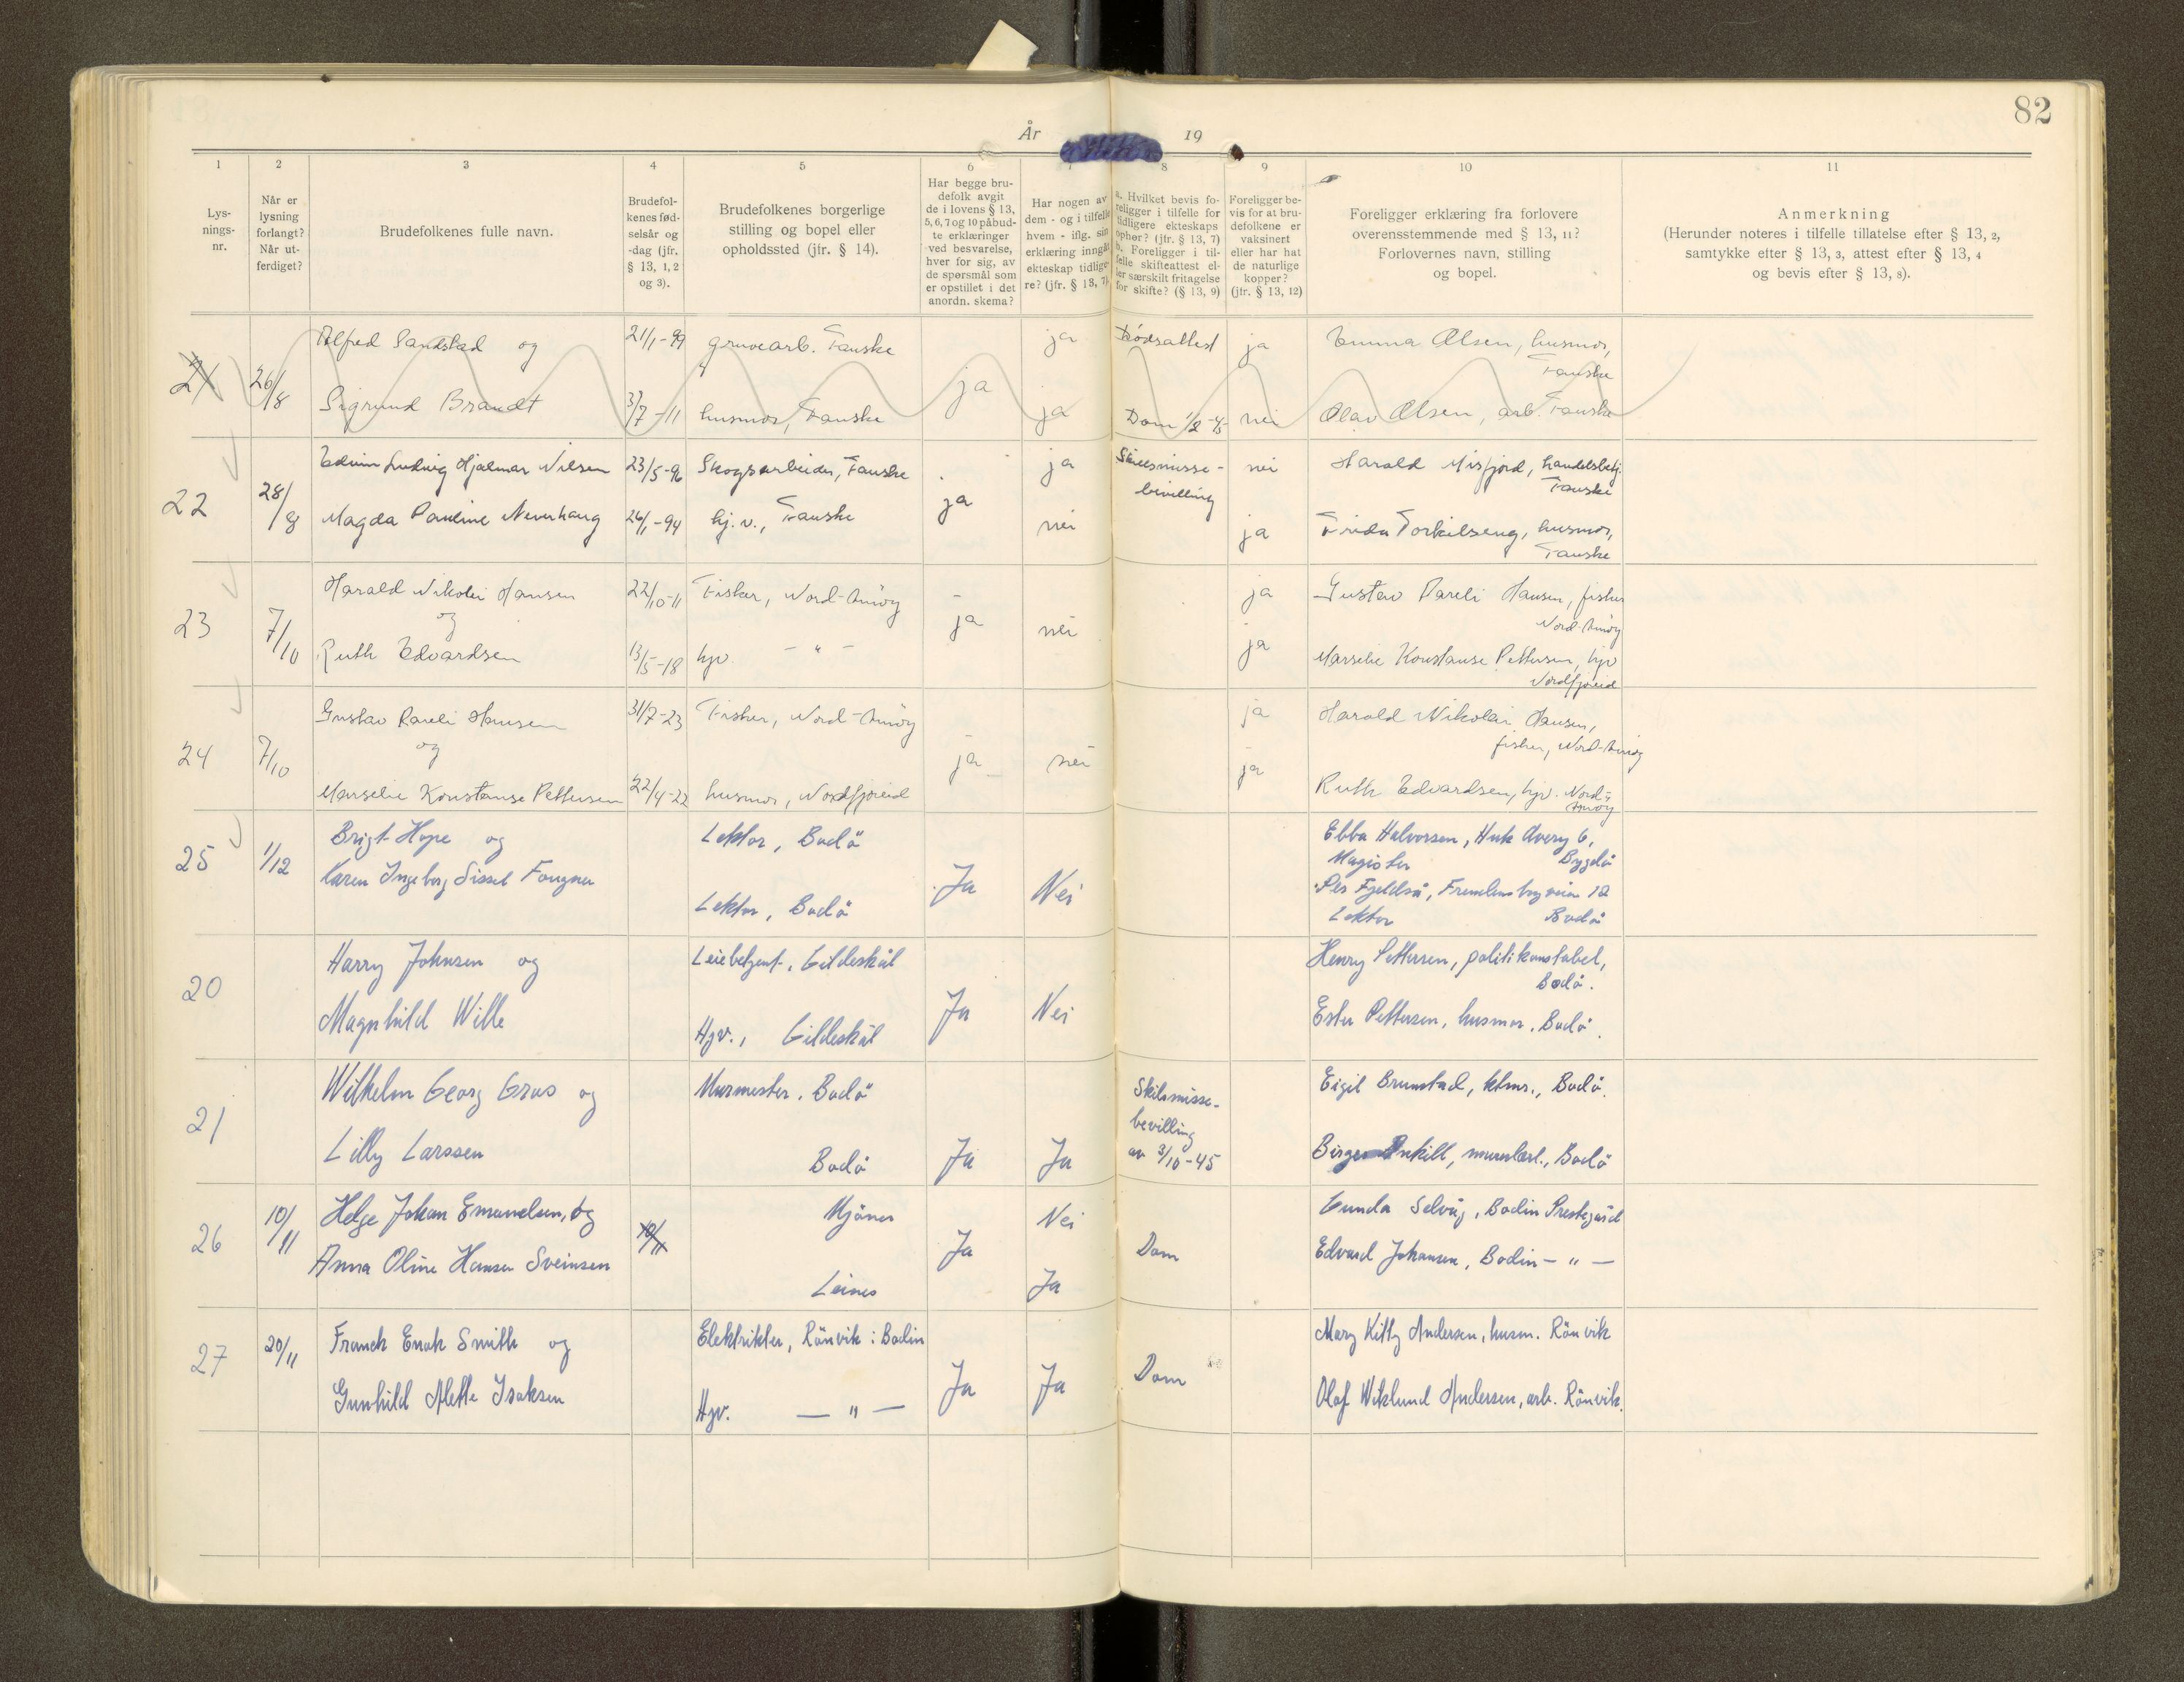 82
År
19
1
2
3
4
5
6
8
9
10
11
Lys-
nings-
nr.
Når er
lysning
forlangt?
Når ut-
ferdiget?
Brudefolkenes fulle navn.
Brudefol-
kenes fød-
selsår og
-dag (jfr.
§ 13, 1, 2
og 3).
Brudefolkenes borgerlige
stilling og bopel eller
opholdssted (jfr. § 14).
Har begge bru-
defolk avgit
de i lovens § 13,
5, 6, 7 og 10 påbud-
te erklæringer
ved besvarelse,
hver for sig, av
de spørsmål som
er opstillet i det
anordn. skema?
Har nogen av
dem - og i tilfelle
hvem - iflg. sin
erklæring inngåt
ekteskap tidlige-
re? (jfr. § 13, 7)
a. Hvilket bevis fo-
religger i tilfelle for
tidligere ekteskaps
ophør? (jfr. § 13, 7)
b. Foreligger i til-
felle skifteattest el-
ler særskilt fritagelse
for skifte? (§ 13, 9)
Foreligger be-
vis for at bru-
defolkene er
vaksinert
eller har hat
de naturlige
kopper?
(jfr. § 13, 12)
Foreligger erklæring fra forlovere
overensstemmende med § 13, 11?
Forlovernes navn, stilling
og bopel.
Anmerkning
(Herunder noteres i tilfelle tillatelse efter § 13, 2,
samtykke efter § 13, 3, attest efter § 13, 4
og bevis efter § 13, 8).
21 26/8 Alfred Sandstad og 21/1-99 gruvearb. Fauske ja Dødsattest ja Emma Olsen, husmor,
Fauske
Sigrund Brandt 3/7-11 husmor, Fauske ja ja Dom nei Olav Olsen, arb. Fauske
22 28/8 Edvin Ludvig Hjalmar Nilsen 23/5-96 Skogsarbeider, Fauske ja Skilsmisse- nei Harald Misfjord, handelsbetj.
bevilling Fauske
Magda Pauline Neverhaug 26/1-94 hj. v., Fauske ja nei ja Frida Torkilseng, husmor,
Fauske
23 7/10 Harald Nikolai Hansen 22/10-11 Fisker, Nord-Arnøy ja Gustav Pareli Hansen, fisker
og ja nei Nord-Arnøy
Ruth Edvardsen 13/5-18 hjv. - " - ja Marselie Konstanse Pettersen, hjv
Nordfjoreid
24 7/10 Gustav Pareli Hansen 31/7-23 Fisker, Nord-Arnøy ja Harald Nikolai Hansen,
og ja nei fisker, Nord-Arnøy
Marselie Konstanse Pettersen 22/4-22 husmor, Nordfjoreid ja Ruth Edvardsen, hjv. Nord-
Arnøy
25 1/12 Brigt Hope og Lektor, Bodö Ebba Halvorsen, Huk Aveny 6,
Magister Bygdö
Karen Ingeborg Sissel Fougner Ja Nei Per Fjeldså, 12
Lektor, Bodö Lektor Bodö
20 Harry Johnsen og Leiebetjent, Gildeskål Henry Pettersen, politikonstabel,
Bodö.
Magnhild Wille Hjv., Gildeskål Ja Nei Ester Pettersen, husmor, Bodö.
21 Wilhelm Georg Gras og Murmester, Bodö Skilsmisse- Eigil Brunstad, ktmr., Bodö.
bevilling
Lilly Larssen Bodö Ja Ja av 3/10-45 Birger Ankill, murerlærl., Bodö
26 10/11 Helge Johan Emanuelsen, og 10/11 Mjönes Nei Gunda Selvåg, Bodin Prestegård
Ja Dom
Anna Oline Hansen Sveinsen Leines Ja Edvard Johansen, Bodin - " -
27 20/11 Franck Enok Smith og Elektrikter, Rönvik i Bodin Mary Kitty Andersen, husm. Rönvik
Ja Ja Dom
Gunhild Alette Isaksen Hjv. - " - Olaf Wiklund Andersen, arb. Rönvik.